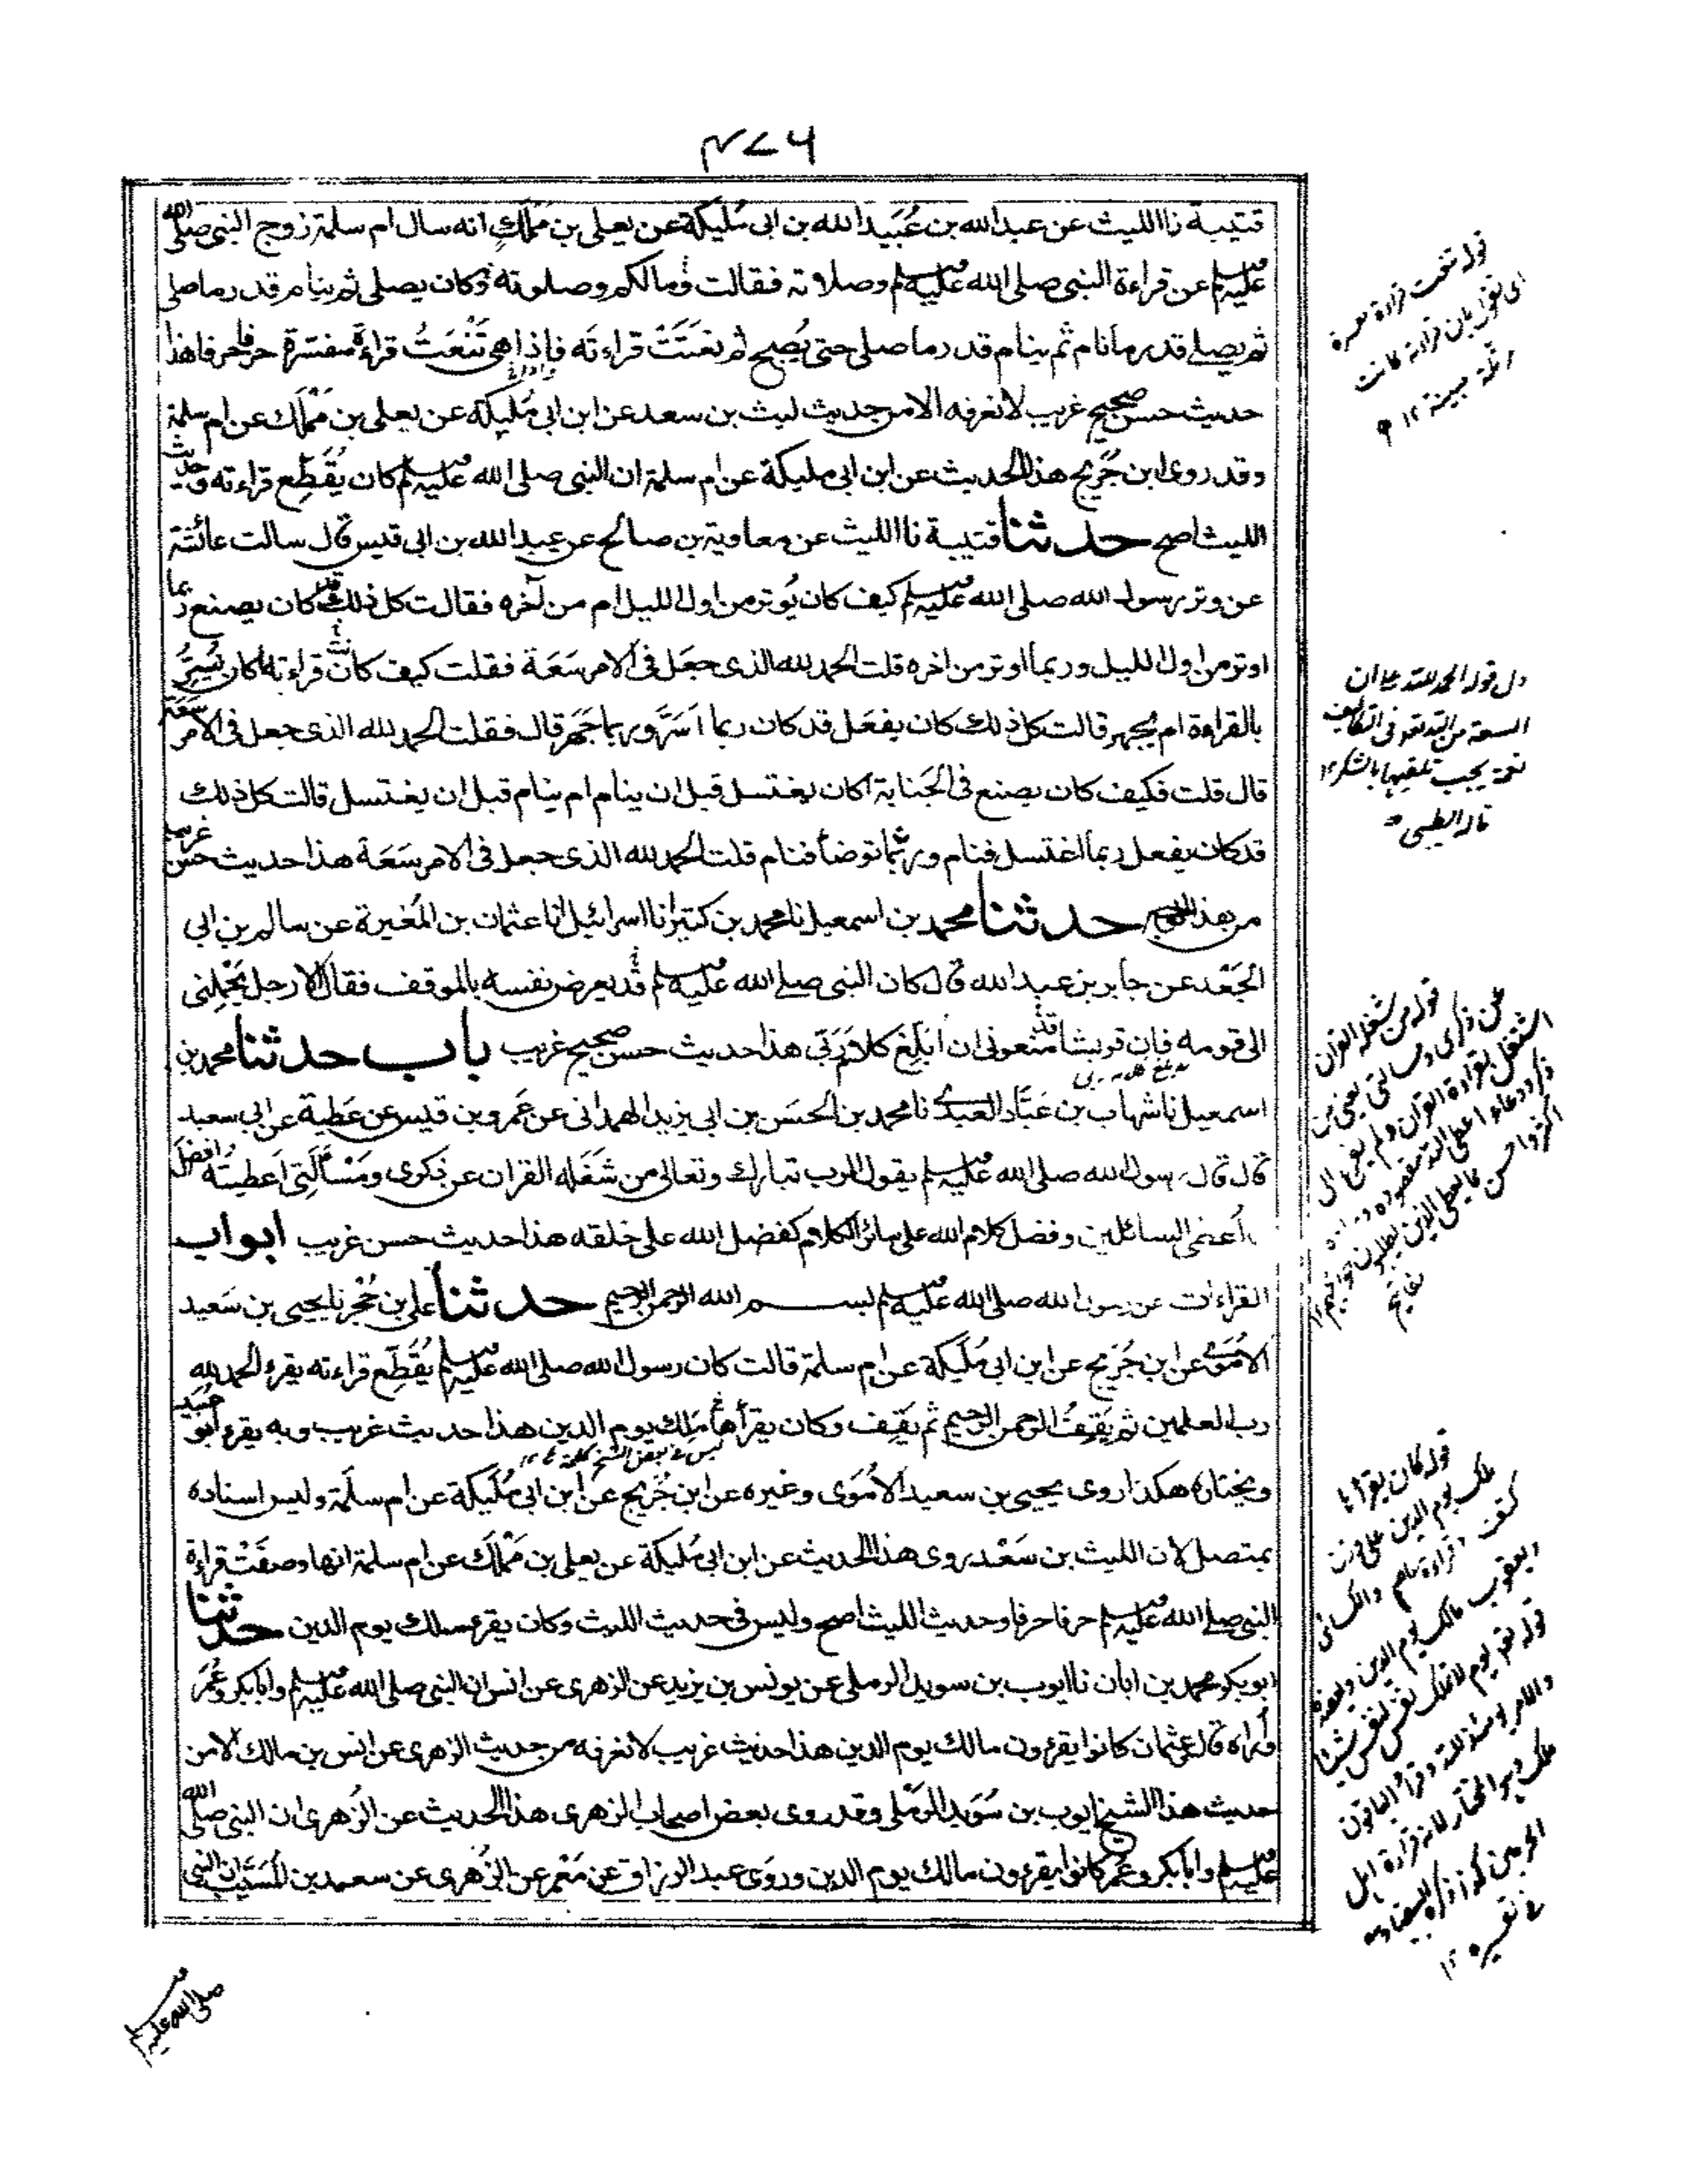 ۴۷۶
قتيبة نا الليث عن عبد الله بن عُبَيد الله بن ابى مُليكة عن يعلى بن مَمْلَكٍ انه سال ام سلمة زوج النبى صلى الله
عليه وسلم عن قراءة النبى صلى الله عليه وسلم وصلاته فقالت وما لكم وصلوته وكان يصلى ثم ينام قدر ما صلى
ثم يصلى قدر ما نام ثم ينام قدر ما صلى حتى يُصبح ثم نعتَتْ قراءته فاذا هى تَنْعَتُ قراءةً مفسّرة حرفا حرفا هذا
حديث حسن صحيح غريب لا نعرفه الا من حديث ليث بن سعد عن ابن ابى مُليكة عن يعلى بن مَمْلَك عن ام سلمة
وقد روى ابن جُرَيج هذا الحديث عن ابن ابى مليكة عن ام سلمة ان النبى صلى الله عليه وسلم كان يُقَطِّع قراءته وحديث
الليث اصح حدثنا قتيبة نا الليث عن معاوية بن صالح عن عبد الله بن ابى قيس قال سالت عائشة
عن وتر رسول الله صلى الله عليه وسلم كيف كان يُوتر من اول الليل ام من آخره فقالت كل ذلك قد كان يصنع ربما
اوتر من اول الليل وربما اوتر من اخره قلت الحمد لله الذى جعل فى الامر سَعَة فقلت كيف كانت قراءته اكان يُسِرُّ
بالقراءة ام يُجهر قالت كل ذلك كان يفعل قد كان ربما اَسَرَّ وربما جَهَر قال فقلت الحمد لله الذى جعل فى الامر سَعَة
قال قلت فكيف كان يصنع فى الجَنابة اكان يغتسل قبل ان ينام ام ينام قبل ان يغتسل قالت كل ذلك
قد كان يفعل ربما اغتسل فنام وربما توضأ فنام قلت الحمد لله الذى جعل فى الامر سَعَة هذا حديث حسن غريب
من هذا الوجه حدثنا محمد بن اسمعيل نا محمد بن كثير انا اسرائيل انا عثمان بن المُغيرة عن سالم بن ابى
الجَعْد عن جابر بن عبد الله قال كان النبى صلى الله عليه وسلم قد يعرض نفسه بالموقف فقال الا رجل يَحْمِلنى
الى قومه فان قريشا قد منعونى ان اُبَلِّغ كلامَ رَبّى هذا حديث حسن صحيح غريب باب حدثنا محمد بن
اسمعيل نا شهاب بن عَبَّاد العبدى نا محمد بن الحسَن بن ابى يزيد الهمدانى عن عَمرو بن قيس عن عَطِية عن ابى سعيد
قال قال رسول الله صلى الله عليه وسلم يقول الرب تبارك وتعالى من شَغَله القران عن ذكرى ومَسْأَلَتِى اَعطيتُه افضل
ما اُعطى السائلين وفضل كلام الله على سائر الكلام كفضل الله على خلقه هذا حديث حسن غريب ابواب
القراءات عن رسول الله صلى الله عليه وسلم بسم الله الرحمن الرحيم حدثنا على بن حُجْر نا يحيى بن سَعيد
الاُمَوى عن ابن جُرَيج عن ابن ابى مُلَيكة عن ام سلمة قالت كان رسول الله صلى الله عليه وسلم يُقَطِّع قراءته يقرء الحمد لله
رب العلمين ثم يَقِفُ الرحمن الرحيم ثم يَقِف وكان يقرأها مَلِك يوم الدين هذا حديث غريب وبه يقرء ابو عُبَيد
ويختاره هكذا روى يحيى بن سعيد الاُمَوى وغيره عن ابن جُرَيج عن ابن ابى مُلَيكة عن ام سلَمة وليس اسناده
بمتصل لان الليث بن سَعْد روى هذا الحديث عن ابن ابى مُليكة عن يعلى بن مَمْلَك عن ام سلمة انها وصفَتْ قراءة
النبى صلى الله عليه وسلم حرفا حرفا وحديث الليث اصح وليس فى حديث الليث وكان يقرء ملك يوم الدين حدثنا
ابو بكر محمد بن ابان نا ايوب بن سويد الرملى عن يونس بن يزيد عن الزهرى عن انس ان النبى صلى الله عليه وسلم وابا بكر وعُمَر
واُراه قال عثمان كانوا يقرءون مالك يوم الدين هذا حديث غريب لا نعرفه من حديث الزهرى عن انس بن مالك الا من
حديث هذا الشيخ ايوب بن سُوَيد الرَمْلى وقد روى بعض اصحاب الزهرى هذا الحديث عن الزُهرى ان النبى صلى الله
عليه وسلم وابا بكر وعُمَر كانوا يقرءون مالك يوم الدين وروَى عبد الرزاق عن مَعْمر عن الزُهرى عن سعيد بن المُسَيَّب ان النبى
صلى الله عليه وسلم
قوله تنعت قراءة مفسرة
اى تقول بان قراءته كانت
مبينة ١٢
دل قوله الحمد لله على ان
السعة من الله تعو فى التكاليف
نعمة يجب تلقيها بالشكر ١٢
قاله الطيبى
قوله من شغله القران
عن ذكرى ومسالتى يعنى من
اشتغل بقراءة القران ولم يفرغ الى
ذكر ودعاء اعطى الله مقصوده
اكثر واحسن مما يعطى الذين يطلبون حوائجهم
قوله كان يقرأها
ملك يوم الدين على وزن
كتف قراءة عاصم والكسائى
ويعقوب مالك يوم الدين ويعضده
قوله تعو يوم لا تملك نفس لنفس شيئا
والامر يومئذ لله وقرأ الباقون
ملك وهو المختار لانه قراءة اهل
الحرمين كذا ذكره البيضاوى
فى تفسيره ١٢